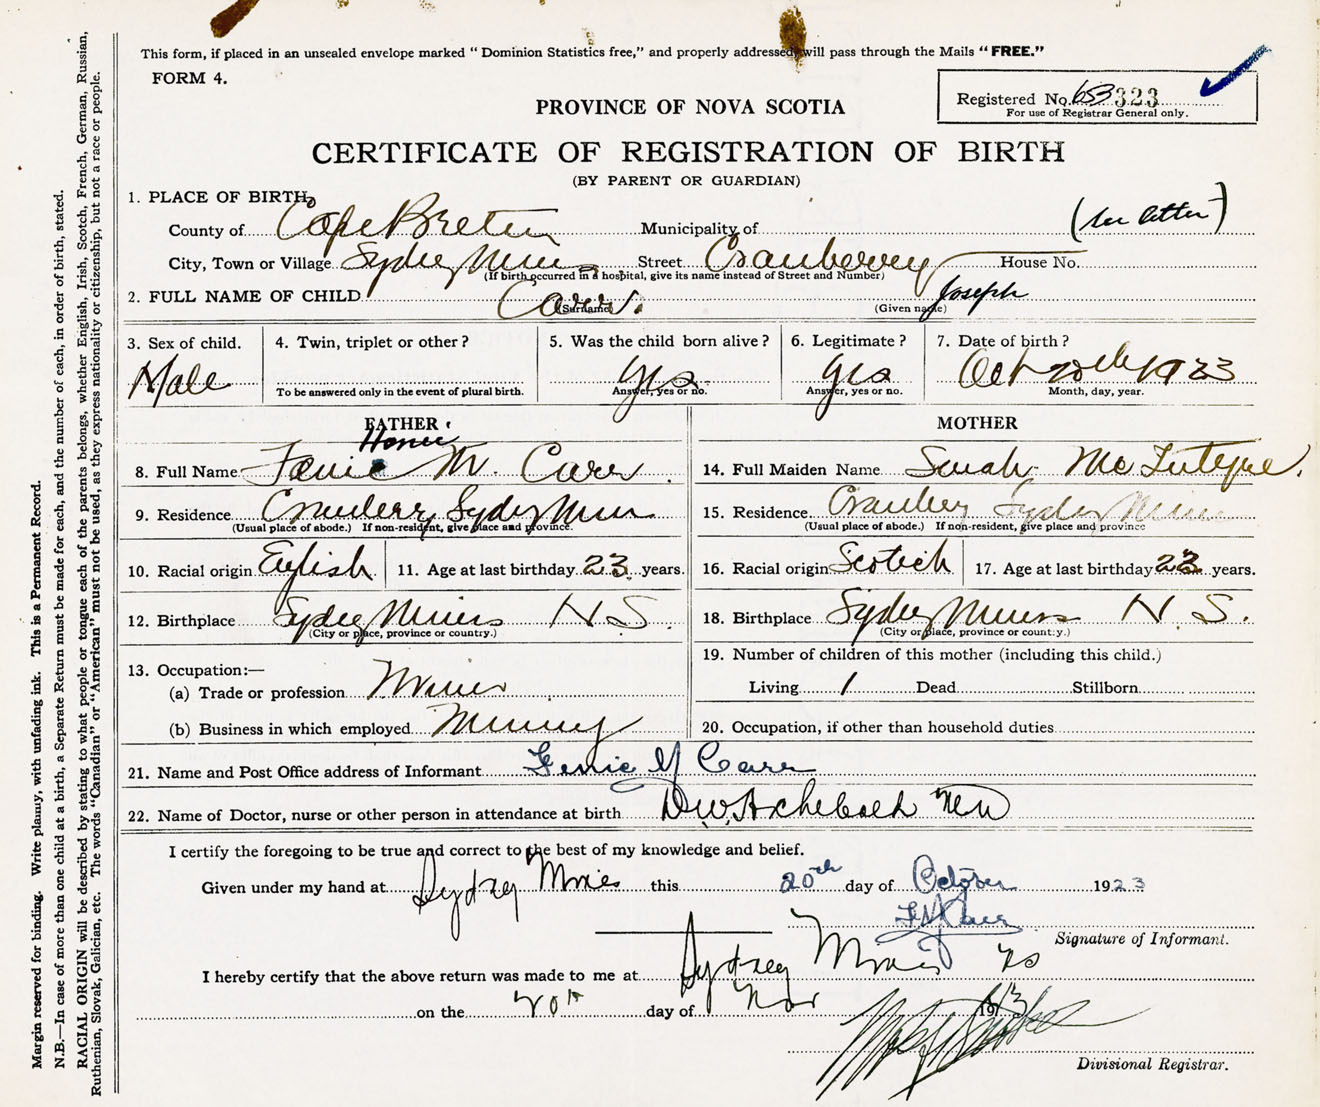 This form, if placed in an unsealed envelope marked "Dominion Statistics free," and properly addressed, will pass through the Mails "FREE."
FORM 4.
Registered No. 653323
For use of Registrar General only.
PROVINCE OF NOVA SCOTIA
CERTIFICATE OF REGISTRATION OF BIRTH
(BY PARENT OR GUARDIAN)
1. PLACE OF BIRTH,
(see letter)
County of Cape Breton Municipality of
City, Town or Village Sydney Mines Street Cranberry House No.
(If birth occurred in a hospital, give its name instead of Street and Number)
2. FULL NAME OF CHILD Carr. Joseph
(Surname) (Given name)
3. Sex of child. 4. Twin, triplet or other? 5. Was the child born alive? 6. Legitimate? 7. Date of birth?
Male Yes Yes Oct 20th 1923
To be answered only in the event of plural birth. Answer, yes or no. Answer, yes or no. Month, day, year.
FATHER MOTHER
8. Full Name M. Carr. 14. Full Maiden Name Sarah McIntyre.
9. Residence Cranberry Sydney Mines 15. Residence Cranberry Sydney Mines
(Usual place of abode.) If non-resident, give place and province. (Usual place of abode.) If non-resident, give place and province
10. Racial origin English 11. Age at last birthday 23 years. 16. Racial origin Scotch 17. Age at last birthday 22 years.
12. Birthplace Sydney Mines N.S. 18. Birthplace Sydney Mines N.S.
(City or place, province or country.) (City or place, province or country.)
13. Occupation:— 19. Number of children of this mother (including this child.)
(a) Trade or profession Miner Living 1 Dead Stillborn
(b) Business in which employed Mining 20. Occupation, if other than household duties
21. Name and Post Office address of Informant Carr
22. Name of Doctor, nurse or other person in attendance at birth D.W. Archibald MD
I certify the foregoing to be true and correct to the best of my knowledge and belief.
Given under my hand at Sydney Mines this 20th day of October 1923
Carr
Signature of Informant.
I hereby certify that the above return was made to me at Sydney Mines NS
on the 20th day of Nov 19
Divisional Registrar.
Margin reserved for binding. Write plainly, with unfading ink. This is a Permanent Record.
N.B.—In case of more than one child at a birth, a Separate Return must be made for each, and the number of each, in order of birth, stated.
RACIAL ORIGIN will be described by stating to what people or tongue each of the parents belongs, whether English, Irish, Scotch, French, German, Russian,
Ruthenian, Slovak, Galician, etc. The words "Canadian" or "American" must not be used, as they express nationality or citizenship, but not a race or people.